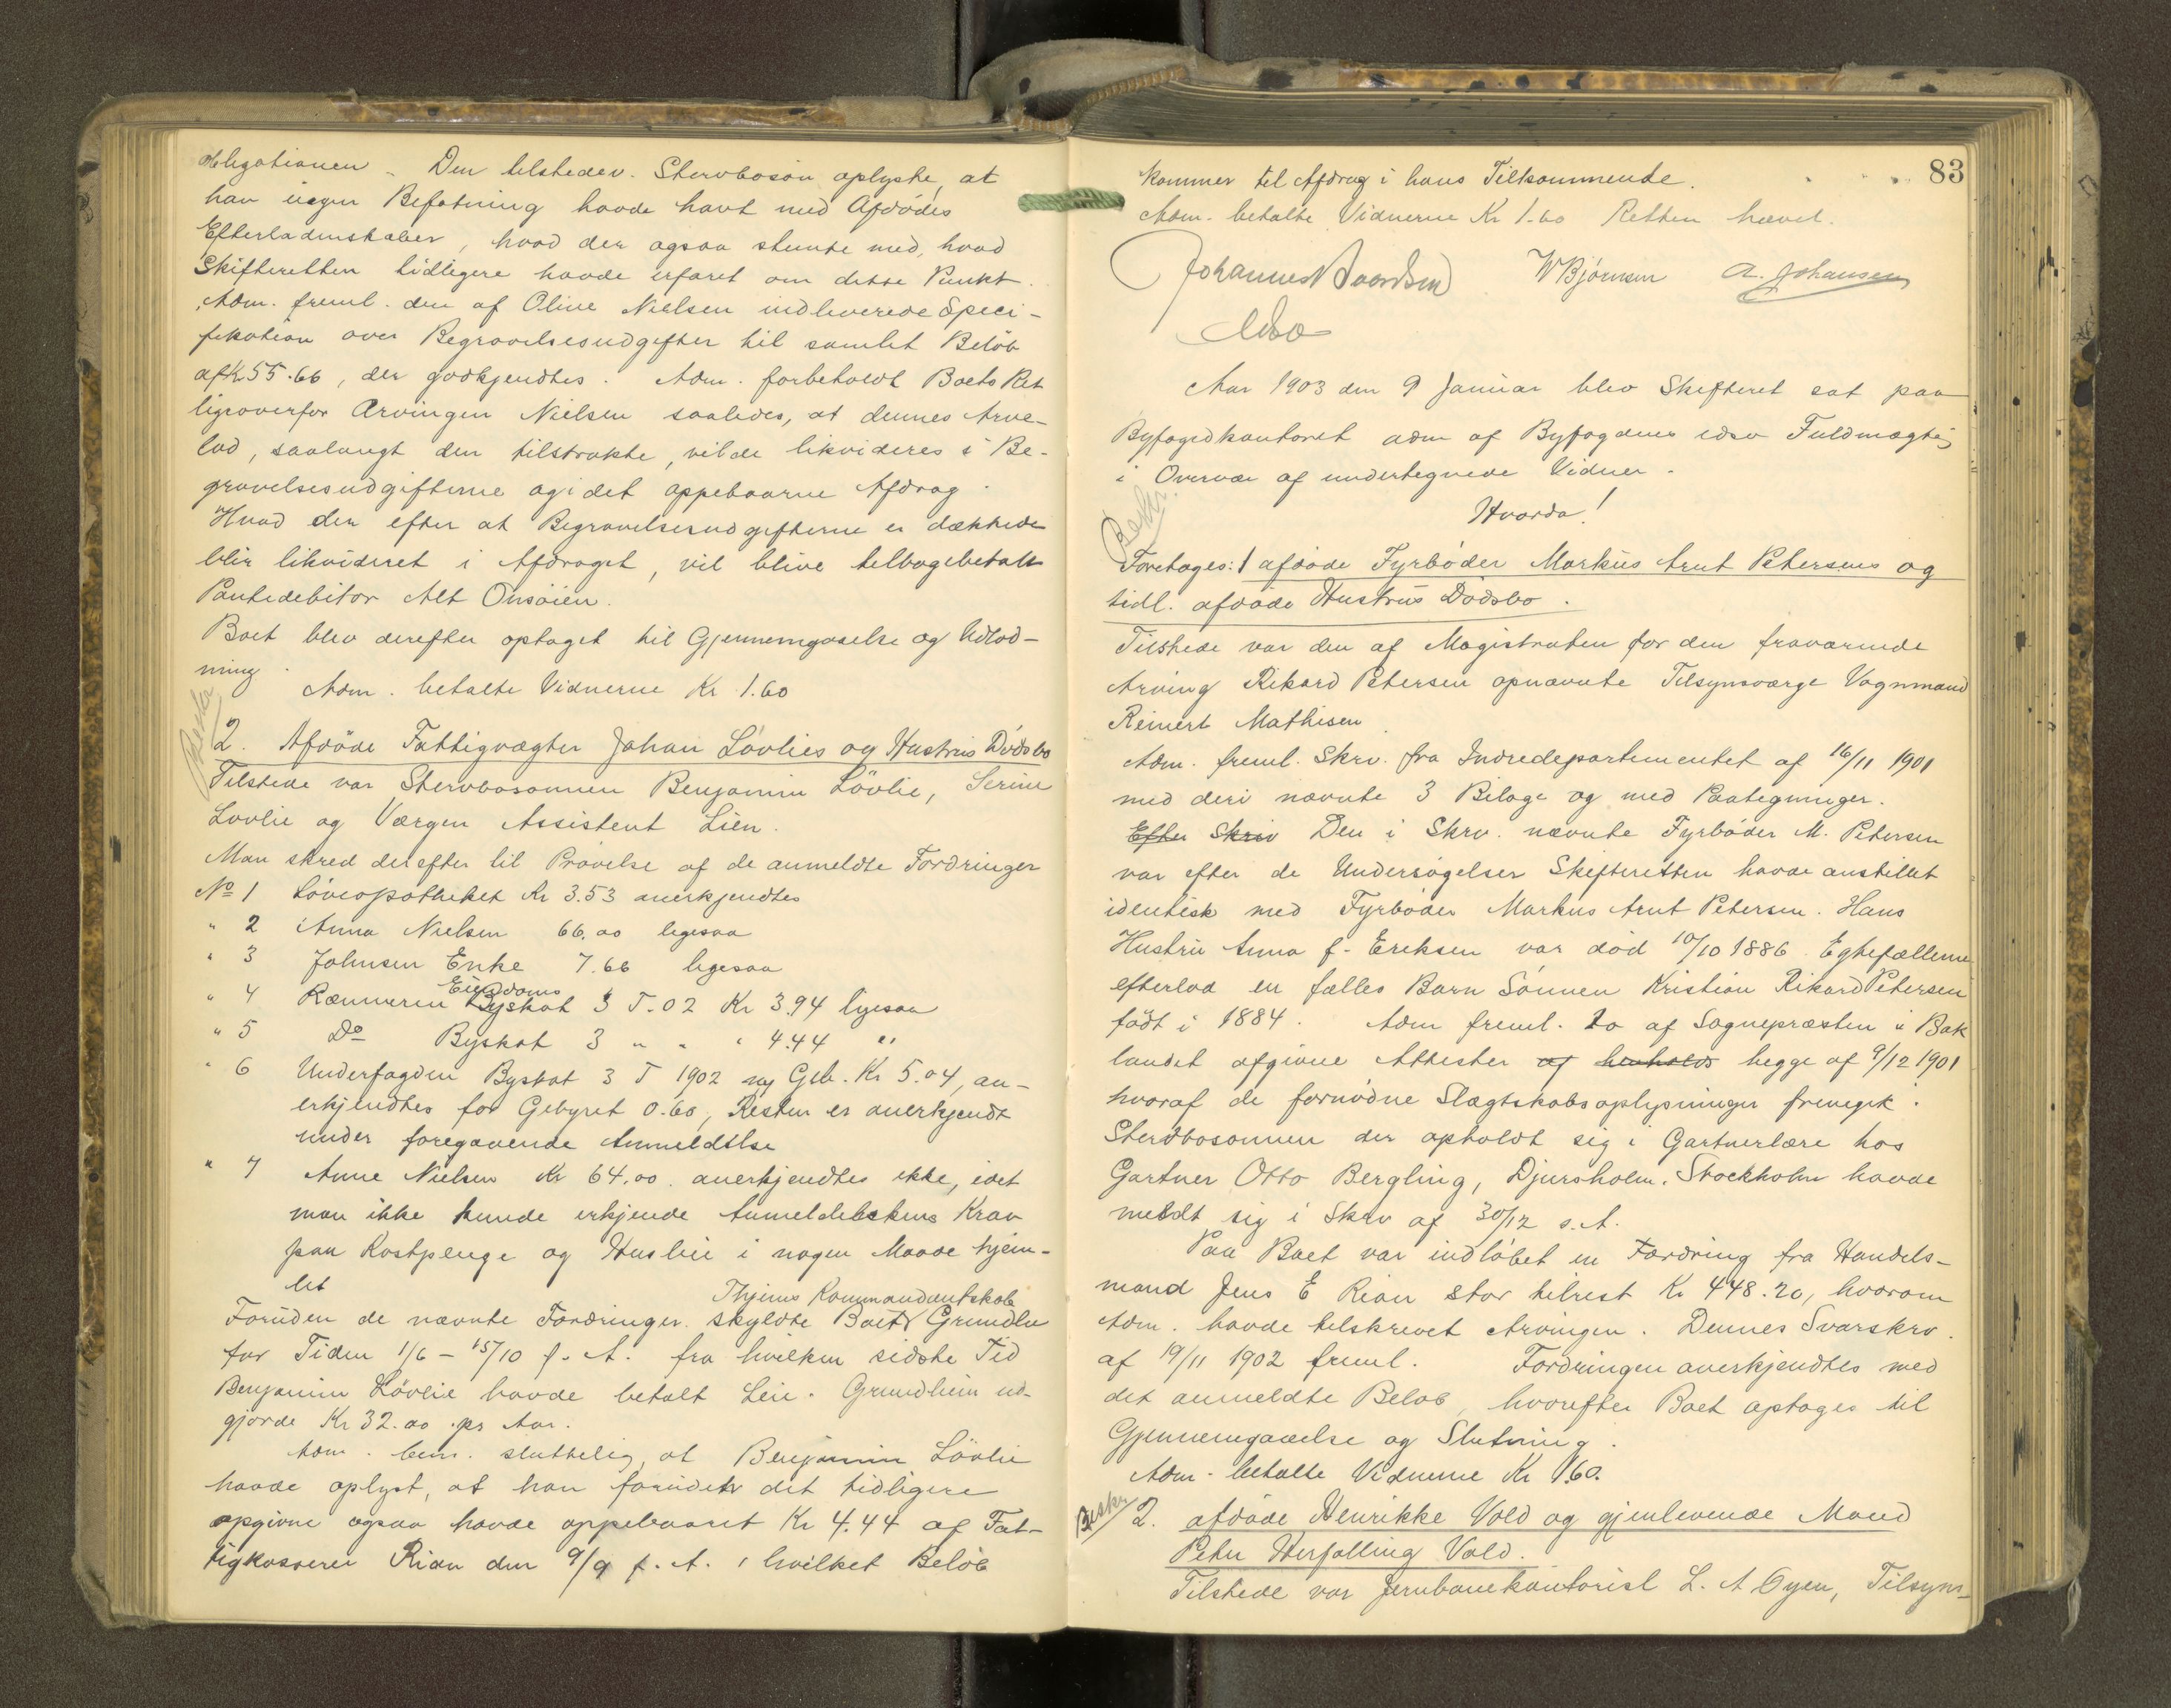 obligationen - Den tilstedev. Stervbosøn oplyste, at
han ingen Befatning havde havt med Afdødes
Efterladenskaber, hvad der ogsaa stemte med, hvad
Skifteretten tidligere havde erfaret om dette Punkt.
Adm. freml. den af Oline Nielsen indleverede Speci-
fikation over Begravelsesudgifter til samlet Beløb
af Kr 55.66, der godkjendtes. Adm. forbeholdt Boets Ret
ligeoverfor Arvingen Nielsen saaledes, at dennes Arve-
lod, saalangt den tilstrakte, vilde likvideres i Be-
gravelsesudgifterne og i det oppebaarne Afdrag.
Hvad der efter at Begravelsesudgifterne er dækkede
blir likvideret i Afdraget, vil blive tilbagebetalt
Pantedebitor Alt Onsøien.
Boet blev derefter optaget til Gjennemgaaelse og Udlod-
ning.
Adm. betalte Vidnerne Kr 1.60
Beskr
2. Afdøde Fattigvægter Johan Løvlies og Hustrus Dødsbo
Tilstede var Stervbosønnen Benjamin Løvlie, Serine
Lovlie og Værgen Assistent Lien.
Man skred derefter til Prøvelse af de anmeldte Fordringer
No 1 Løveapotheket Kr 3.53 anerkjendtes
" 2 Anna Nielsen 66.00 ligesaa
" 3 Johnsen Enke 7.66 ligesaa
Eiendoms
" 4 Kæmneren Byskat 3 T. 02 Kr 3.94 ligesaa
" 5 Do Byskat 3 " " " 4.44 "
" 6 Underfogden Byskat 3 T 1902 og Geb. Kr 5.04, an-
erkjendtes for Gebyret 0.60, Resten er anerkjendt
under foregaaende Anmeldelse
" 7 Anne Nielsen Kr 64.00. anerkjendtes ikke, idet
man ikke kunde erkjende Anmelderskens Krav
paa Kostpenge og Husleie i nogen Maade hjem-
let
Thjems Kommandantskab
Foruden de nævnte Fordringer skyldte Boet Grundleie
for Tiden 1/6 - 15/10 f. A. fra hvilken sidste Tid
Benjamin Løvlie havde betalt Leie. Grundleien ud-
gjorde Kr 32.00 pr Aar.
Adm. bem. sluttelig, at Benjamin Løvlie
havde oplyst, at han foruden det tidligere
opgivne ogsaa havde oppebaaret Kr 4.44 af Fat-
tigkasserer Rian den 9/9 f. A., hvilket Beløb
83
kommer til Afdrag i hans Tilkommende.
Adm. betalte Vidnerne Kr 1.60 Retten hævet.
W Bjørnsen A. Johansen
Aar 1903 den 9 Januar blev Skifteret sat paa
Byfogedkontoret adm af Byfogdens edsv Fuldmægtig
i Overvær af undertegnede Vidner -
Hvorda!
Beskr.
Foretoges: 1 afdøde Fyrbøder Markus Arnt Petersens og
tidl. afdøde Hustrus Dødsbo.
Tilstede var den af Magistraten for den fraværende
Arving Rikard Petersen opnævnte Tilsynsværge Vognmand
Reinert Mathisen
Adm. freml. Skrv. fra Indredepartementet af 16/11 1901
med deri nævnte 3 Bilage og med Paategninger.
Efter Skriv Den i Skrv. nævnte Fyrbøder M. Petersen
var efter de Undersøgelser Skifteretten havde anstillet
identisk med Fyrbøder Markus Arnt Petersen. Hans
Hustru Anna f. Eriksen var død 10/10 1886. Egtefællerne
efterlod en fælles Barn Sønnen Kristian Rikard Petersen
født i 1884. Adm freml. to af Sognepræsten i Bak
landet afgivne Attester af henholds begge af 9/12 1901
hvoraf de fornødne Slægtskabsoplysninger fremgik.
Stervbosønnen der opholdt sig i Gartnerlære hos
Gartner Otto Bergling, Djursholm, Stockholm havde
meldt sig i Skrv af 30/12 s. A.
Paa Boet var indløbet en Fordring fra Handels-
mand Jens E Rian stor tilrest Kr 448.20, hvorom
Adm. havde tilskrevet Arvingen. Dennes Svarskrv.
af 19/11 1902 freml. Fordringen anerkjendtes med
det anmeldte Beløb, hvorefter Boet optages til
Gjennemgaaelse og Slutning.
Adm. betalte Vidnerne Kr 1.60.
Beskr
2. afdøde Henrikke Vold og gjenlevende Mand
Peter Herfalling Vold.
Tilstede var Jernbanekontorist L. A Oyen, Tilsyns-